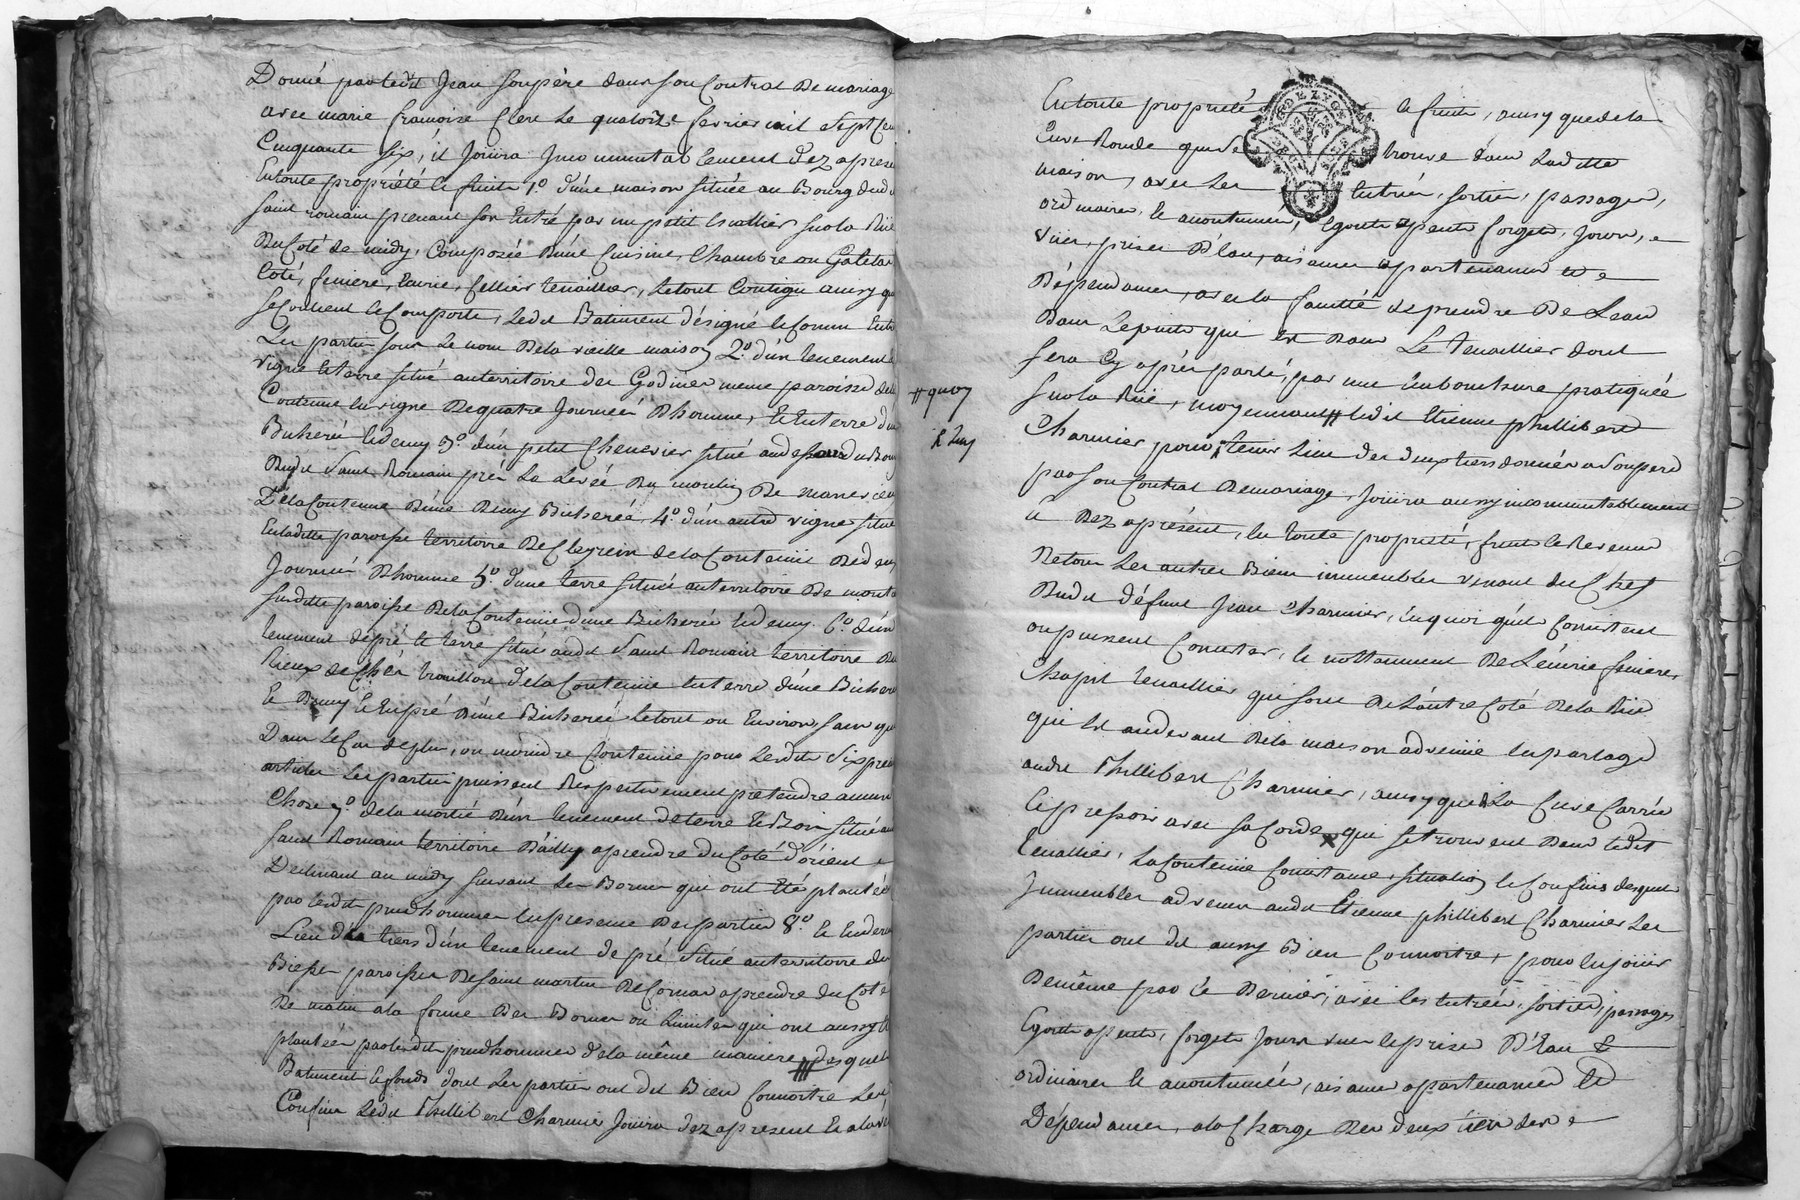 Donné par ledit Jean son père dans son Contrat De mariage
avec marie francoise Clere Le quatorze fevrier mil sept Cen
Cinquante six, il Joüira Incommutablement d'ez apresen
Entoute propriété le fruits 1.º d'une maison située au Bourg dud
saint romain prenant son Entré par un petit Escallier sur la Rüe
Du Coté de midy, Composée D'une Cuisine, Chambre ou Galeta
Coté, feniere, Ecurie, Cellier tenaillier, Letout Contigu aussy que
se Contient le Comporte, Ledit Batiment désigné le Connu Entre
Les parties sous Le nom De la vieille maison 2.º d'un tenement
vigne le terre situé au territoire des Godines meme paroisse de la
Contenue en vigne De quatre Journeés D'homme, Et En terre d'un
Bicheré le demy 3.º d'un petit Chenevier situé au dessous du Bour
Dudit Saint Romain près La Levée Du moulin De
De la Contenue D'une Demy Bichereé, 4.º d'un autre vigne situé
En ladite paroisse territoire De Cleyrein de la Contenüe De deux
Journeés D'homme 5.º d'une terre située au territoire De mont
susditte paroisse De la Contenüe d'une Bicheré le demy 6.º d'un
tenement de pré le terre situé audit Saint Romain territoire Du
Rieux de Chés trouillon de la Contenüe En terre d'une Bicheré
le Demy le En pré D'une Bichereé le tout ou Environ, sans que
Dans le Cas de plus, ou moindre Contenüe pour Lesdits Six premi
articles Les parties puissent Respectivement pretendre aucune
Chose 7.º de la moitié D'un tenement de terre le Bois situé au
saint Romain territoire D'ailly a prendre du Coté d'orient e
Declinant au midy suivant Les Bornes qui ont Eté plantée
par lesdits prudhommes En presence Des parties 8.º le Ender
Lieu des tiers d'un tenement de pré situé au territoire des
Biesses paroisse De saint martin De Cornas a prendre du Coté
De matin a la forme Des Bornes ou Limites qui ont aussy Eté
plantéés par lesdits prudhommes de la même maniere desquels
Batiment le fonds dont Les parties ont dit Bien Connoitre Les
Confins Ledit Phillibert Charmier Joüira d'ez apresent le a l'avenir
En toute propriété le fruits, aussy que de la
Cuve Ronde qui se trouve dans Laditte
maison, avec Les Entrées, sorties, passages,
ordinaires, le accoutumées, Egouts apents forgets, Jours, e
vües, prises D'Eau, aisances apartenances et e
Dépendances, avec la faculté de prendre De L'eau
Dans Le puits qui Est Dans Le Tenaillier dont
sera Cy après parlé, par une Embouchure pratiquée
sur la Rüe, moyennant # ledit Etienne phillibert
# quoy
Charmier pour tenir Lieu des deux tiers donnés a Son pere
par son Contrat De mariage, Joüira aussy incommutablement
le Dez apresent, En toute propriété, fruits le Revenus
De tous Les autres Biens immeubles venant du Chef
Dudit défunt Jean Charmier, En quoi qu'il Consistent
ou puissent Consister, le nottamment De L'écurie feniere,
Chapit tenaillier qui sont De L'autre Coté De la Rüe
qui Est audevant De la maison advenüe En partage
audit Phillibert Charmier, aussy que La Cuve Carrée
le pressoir avec sa Corde que se trouvent Dans Ledit
tenaillier, La Contenüe Consistance, situation le Confins desquels
Immeubles advenus audit Etienne phillibert Charmier Les
parties ont dit aussy Bien Connoitre, pour En joüir
De même par Ce Dernier, avec les Entrées, sorties, passages
Egouts apents, forgets Jours vües le prises D'Eau &
ordinaires le accoutumées, aisances apartenances Et
Dépendances, a la Charge Des deux tiers des e